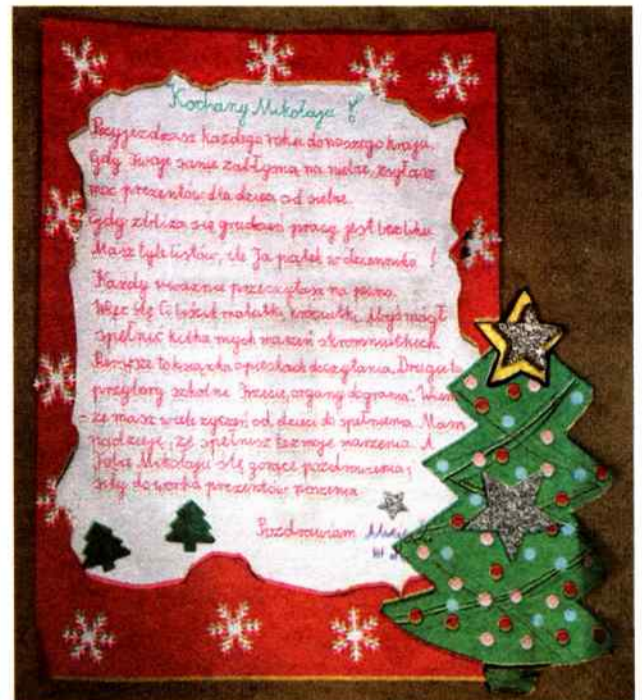 Kochany Mikołaju!
Przyjeżdżasz każdego roku do naszego kraju.
Gdy Twoje sanie zabłysną na niebie, zsyłasz
moc prezentów dla dzieci od siebie.
Gdy zbliża się grudzień pracy jest bez liku
Masz tyle listów, ile Ja piątek w dzienniku!
Każdy uważnie przeczytasz na pewno.
Więc ślę Ci liścik malutki, króciutki, abyś mógł
spełnić kilka mych marzeń skromniutkich.
Pierwsze to książka o pieskach do czytania. Drugie to
przybory szkolne. Trzecie, organy do grania. Wiem
- że masz wiele życzeń od dzieci do spełnienia. Mam
nadzieję, że spełnisz też moje marzenia. A
Tobie Mikołaju ślę gorące pozdrowienia,
siły do worka prezentów noszenia.
Pozdrawiam